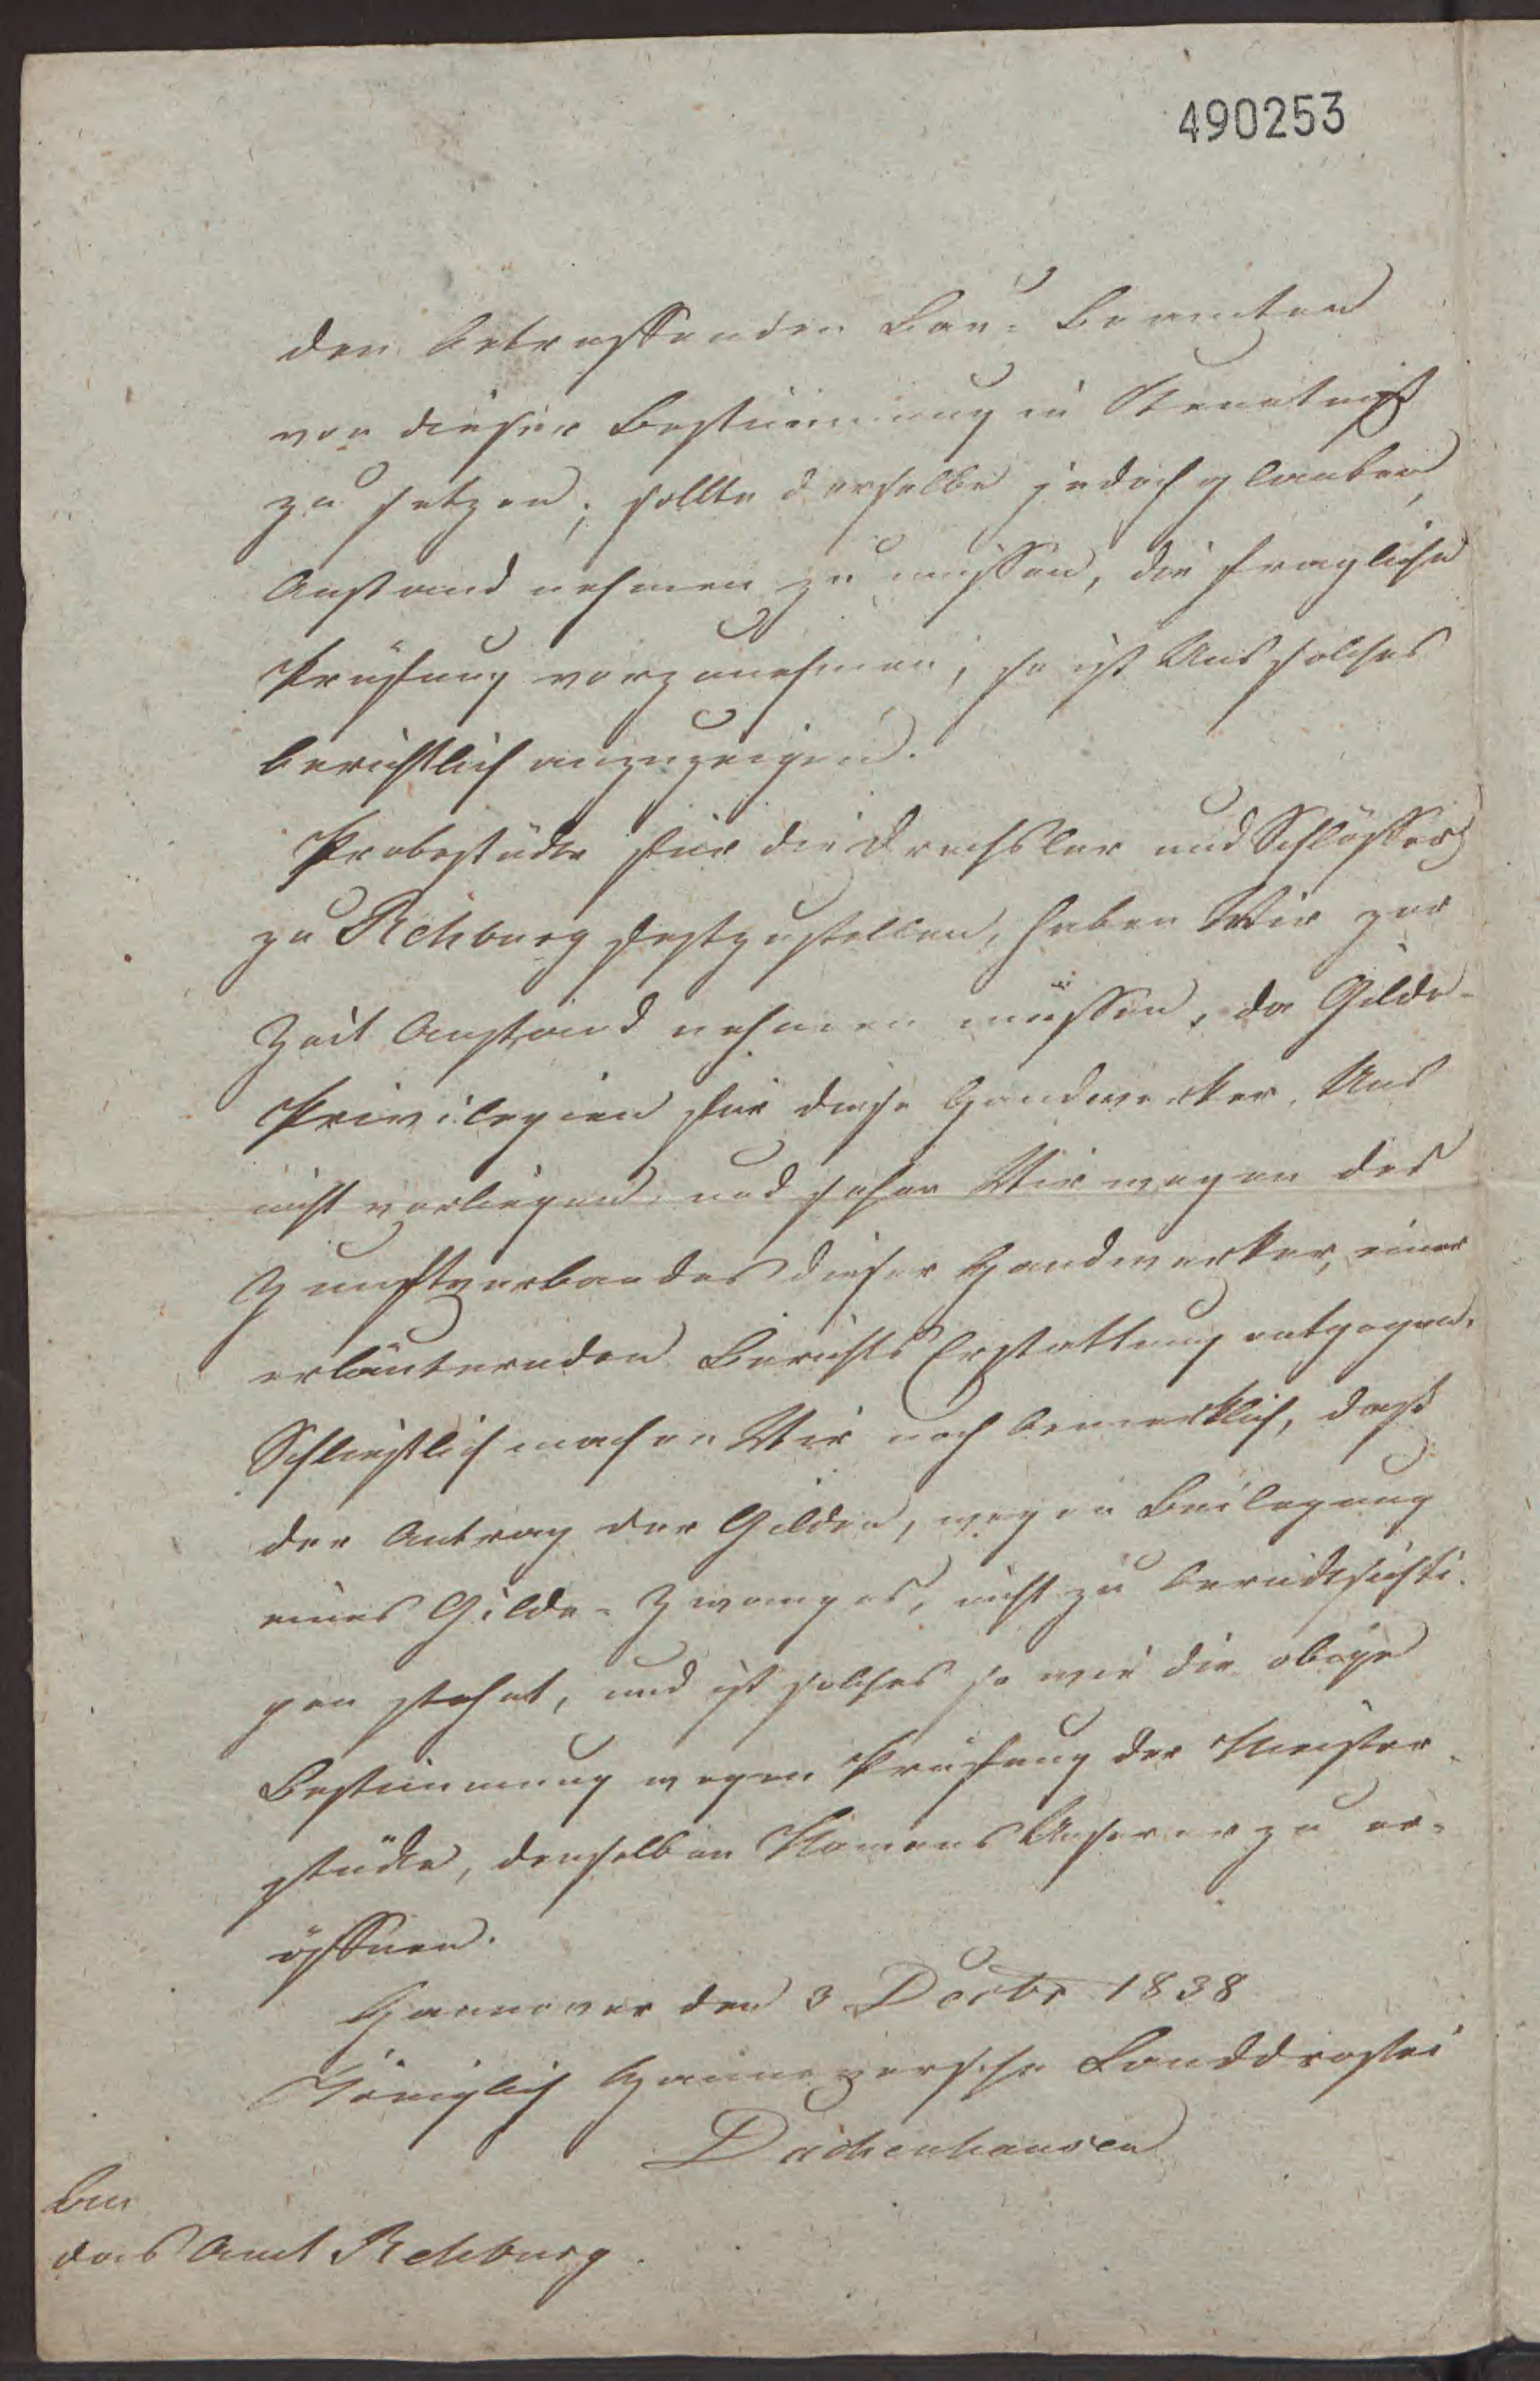 490253
den betreffenden Bau-Beamten
von dieser Bestimmung in Kenntniß
zu setzen; sollte derselbe jedoch glauben,
Anstand nehmen zu müssen, die fragliche
Prüfung vorzunehmen, so ist Uns solches
berichtlich anzuzeigen.
Probestücke für die Drechsler und Schlösser
zu Rehburg festzustellen, haben Wir zur
Zeit Anstand nehmen müssen, da Gilde-
Privilegien für diese Handwerker Uns
nicht vorliegen, und sehen Wir wegen des
Zunftverbandes dieser Handwerker, einer
erläuternden Berichts Erstattung entgegen.
Schließlich machen Wir noch bemerklich, daß
der Antrag der Gilden, wegen Beilegung
eines Gilde-Zwanges, nicht zu berücksichti-
gen stehet, und ist solches so wie die obige
Bestimmung wegen Prüfung der Meister-
stücke, denselben Namens Unserer zu er-
öffnen.
Hannover den 3 Decbr 1838
Königlich Hannoversche Landdrostei
Dachenhausen
An
das Amt Rehburg.